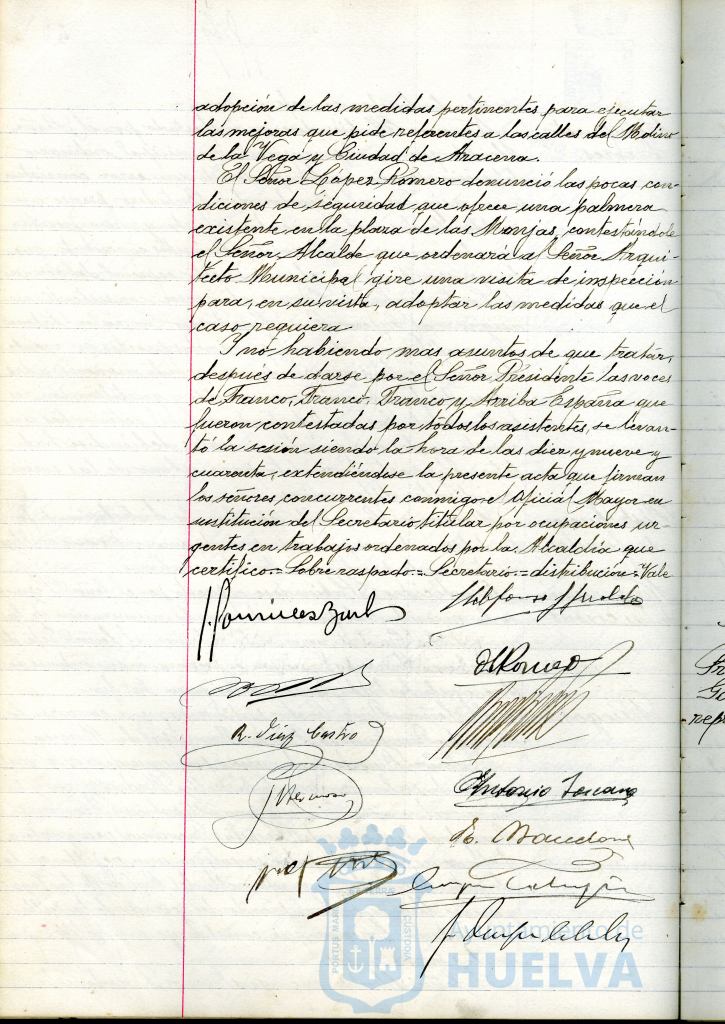 adopción de las medidas pertinentes para ejecutar
las mejoras que pide referentes a las calles del Molino
de la Vega y Ciudad de Aracena.
El Señor López Romero denunció las pocas con-
diciones de seguridad que ofrece una palmera
existente en la plaza de las Monjas, contestándole
el Señor Alcalde que ordenará al Señor Arqui-
tecto Municipal gire una visita de inspección
para, en su vista, adoptar las medidas que el
caso requiera
Y no habiendo mas asuntos de que tratar,
después de darse por el Señor Presidente las voces
de Franco, Franco, Franco y Arriba España que
fueron contestadas por todos los asistentes, se levan-
tó la sesión siendo la hora de las diez y nueve y
cuarenta, extendiéndose la presente acta que firman
los señores concurrentes conmigo el Oficial Mayor en
sustitución del Secretario titular por ocupaciones ur-
gentes en trabajos ordenados por la Alcaldía que
certifico.= Sobre raspado.= Secretario.= distribución.= Vale
R. Díaz Castro
Antonio
PORTUS MARIS
CUSTODIA
Ayuntamiento de
HUELVA